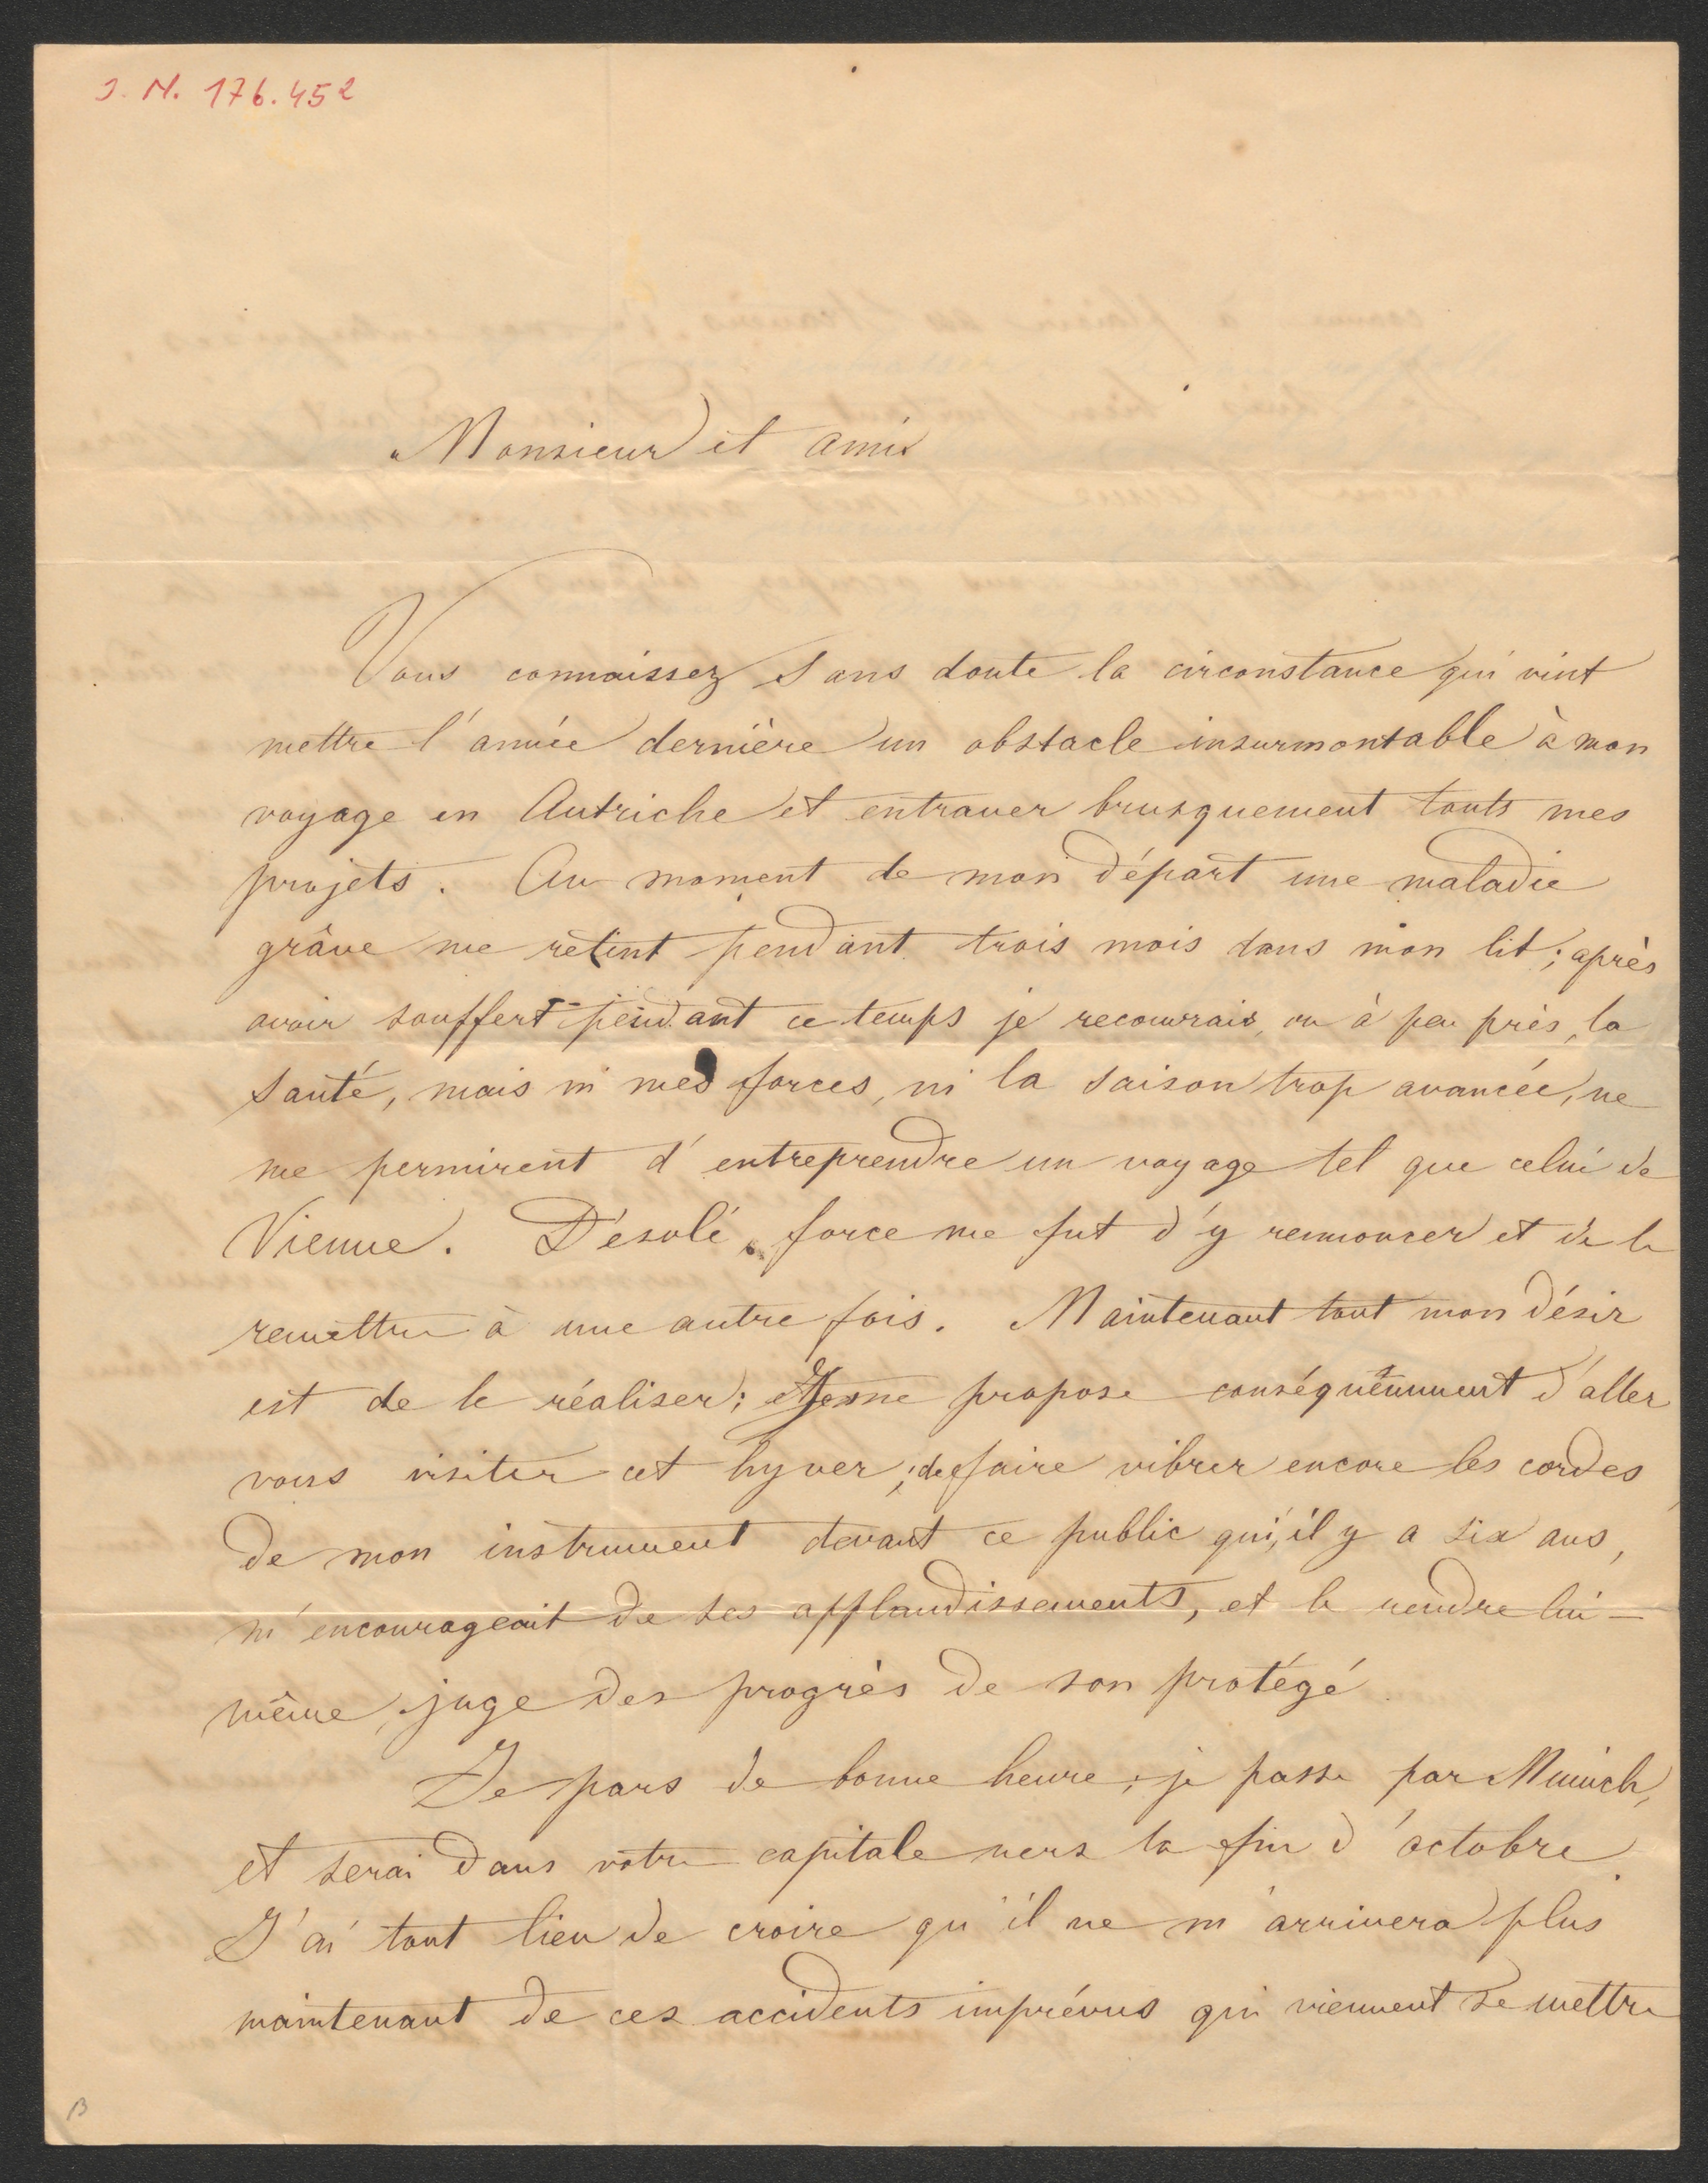 J. N. 176.452
Monsieur et ami
Vous connaissez sans doute la circonstance qui vint
mettre l'année dernière un obstacle insurmontable à mon
voyage en Autriche et entraver brusquement touts mes
projets. Au moment de mon départ une maladie
grâve me retint pendant trois mois dans mon lit; après
avoir souffert pendant ce temps je recouvrais, ou à peu près, la
santé, mais ni mes forces, ni la saison trop avancée, ne
me permirent d'entreprendre un voyage tel que celui de
Vienne. Désolé, force me fut d'y rennoncer et de le
remettre à une autre fois. Maintenant tout mon désir
est de le réaliser; Je me propose conséquemment d'aller
vous visiter cet hyver; de faire vibrer encore les cordes
de mon instrument devant ce public qui, il y a six ans,
m'encourageait de ses applaudissements, et le rendre lui-
même, juge des progrès de son protégé.
Je pars de bonne heure; je passe par Munich,
et serai dans votre capitale vers la fin d'octobre.
J'ai tout lieu de croire qu'il ne m'arrivera plus
maintenant de ces accidents imprévus qui viennent se mettre
B